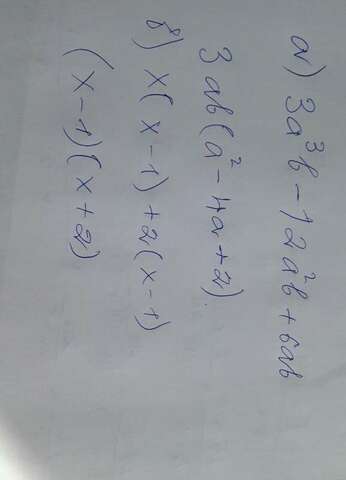 а) 3a³b - 12a²b + 6ab
3ab(a² - 4a + 2)
б) x(x - 1) + 2(x - 1)
(x - 1)(x + 2)